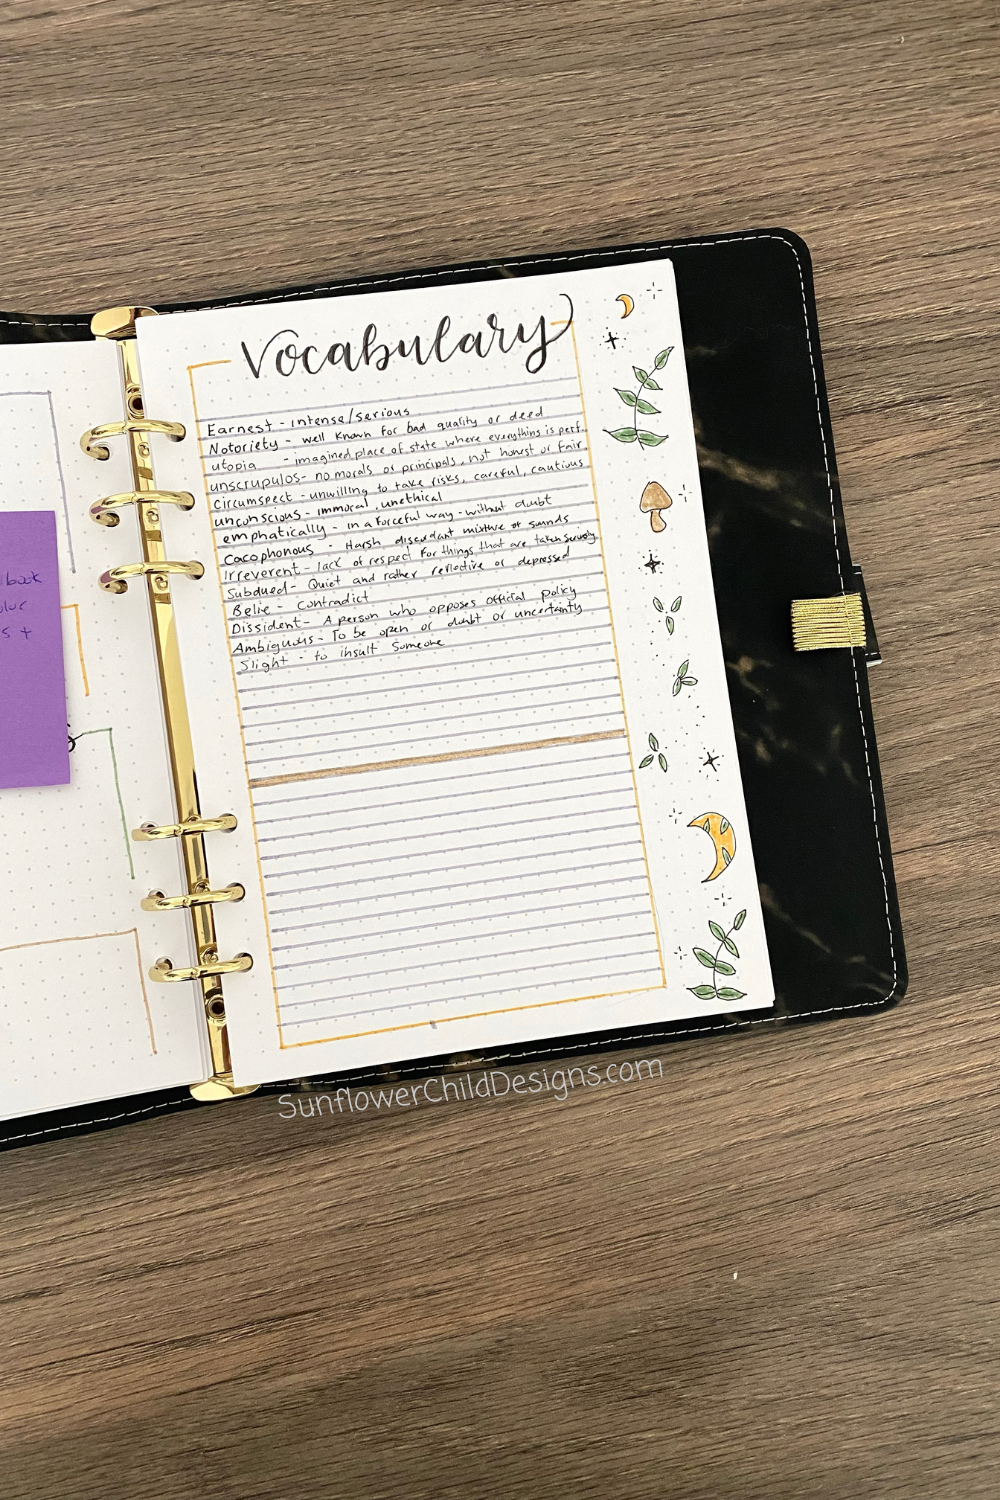 Vocabulary
Earnest - intense/serious
Notoriety - well known for bad quality or deed
utopia - imagined place of state where everything is perf.
unscrupulos - no morals or principals, not honest or fair
Circumspect - unwilling to take risks, careful, cautious
unconscious - immoral, unethical
emphatically - in a forceful way - without doubt
Cacophonous - Harsh discordant mixture of sounds
Irreverent - lack of respect for things that are taken seriously
Subdued - Quiet and rather reflective or depressed
Belie - contradict
Dissident - A person who opposes official policy
Ambiguous - To be open or doubt or uncertainty
Slight - to insult someone
book
s +
SunflowerChildDesigns.com